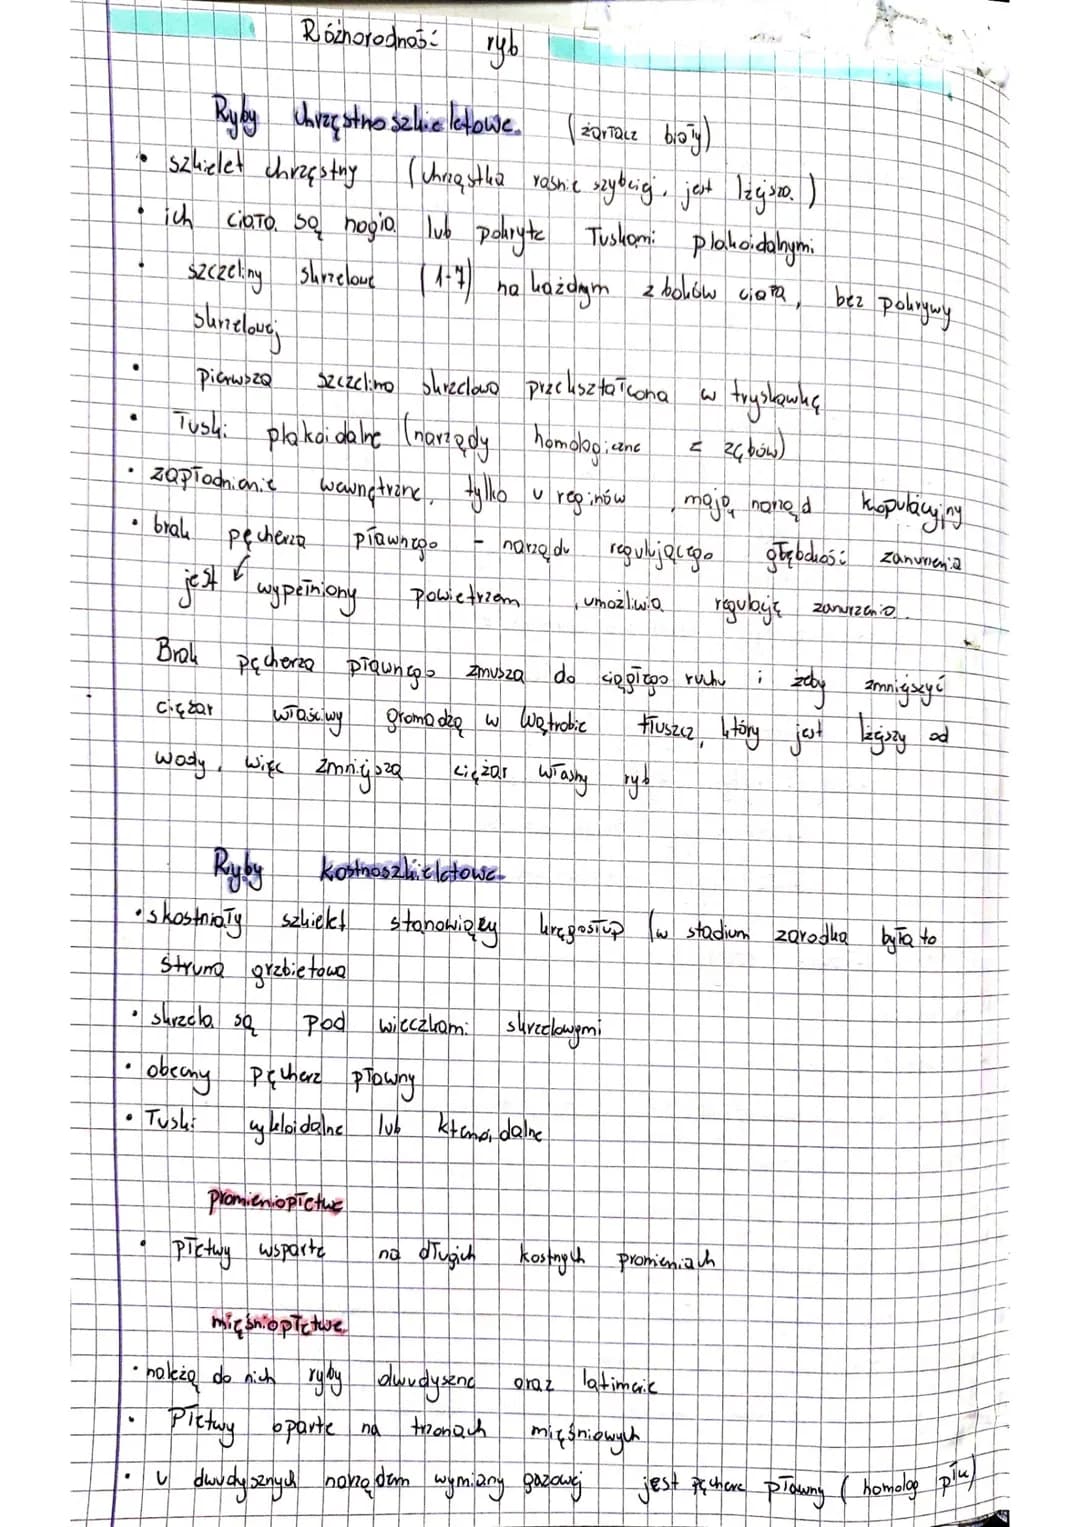 Różnorodność ryb
Ryby chrzęstnoszkieletowe. (żarłacz biały)
• szkielet chrzęstny (chrząstka rośnie szybciej, jest lżejsza.)
• ich ciała są nagie lub pokryte łuskami plakoidalnymi
• szczeliny skrzelowe (1-7) na każdym z boków ciała, bez pokrywy
skrzelowej
• pierwsza szczelina skrzelowa przekształcona w tryskawkę
• Łuski plakoidalne (narządy homologiczne z zębów)
• zapłodnienie wewnętrzne, tylko u reginów, mają narząd kopulacyjny
• brak pęcherza pławnego - narządu regulującego głębokość zanurzenia
jest wypełniony powietrzem, umożliwia regulację zanurzenia.
Brak pęcherza pławnego zmusza do ciągłego ruchu i żeby zmniejszyć
ciężar właściwy gromadzą w wątrobie tłuszcz, który jest lżejszy od
wody, więc zmniejsza ciężar własny ryb
Ryby kostnoszkieletowe
• skostniały szkielet stanowiący kręgosłup (w stadium zarodka była to
struna grzbietowa
• skrzela są pod wieczkami skrzelowymi
• obecny pęcherz pławny
• Łuski cykloidalne lub ktenoidalne
promieniopłetwe
• płetwy wsparte na długich kostnych promieniach
mięśniopłetwe
• należą do nich ryby dwudyszne oraz latimerie
• Płetwy oparte na trzonach mięśniowych
• u dwudysznych narządem wymiany gazowej jest pęcherz pławny (homolog płuc)